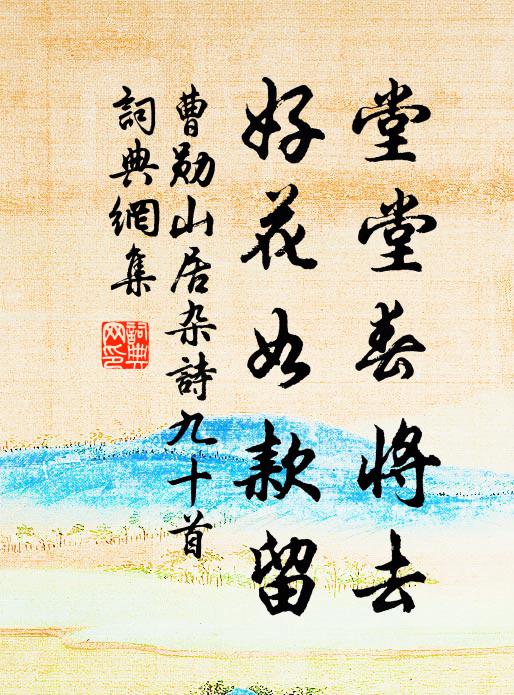 堂堂春將去
好花如款留
曹勛山居杂詩九十首
詞典網集
詞典
网印